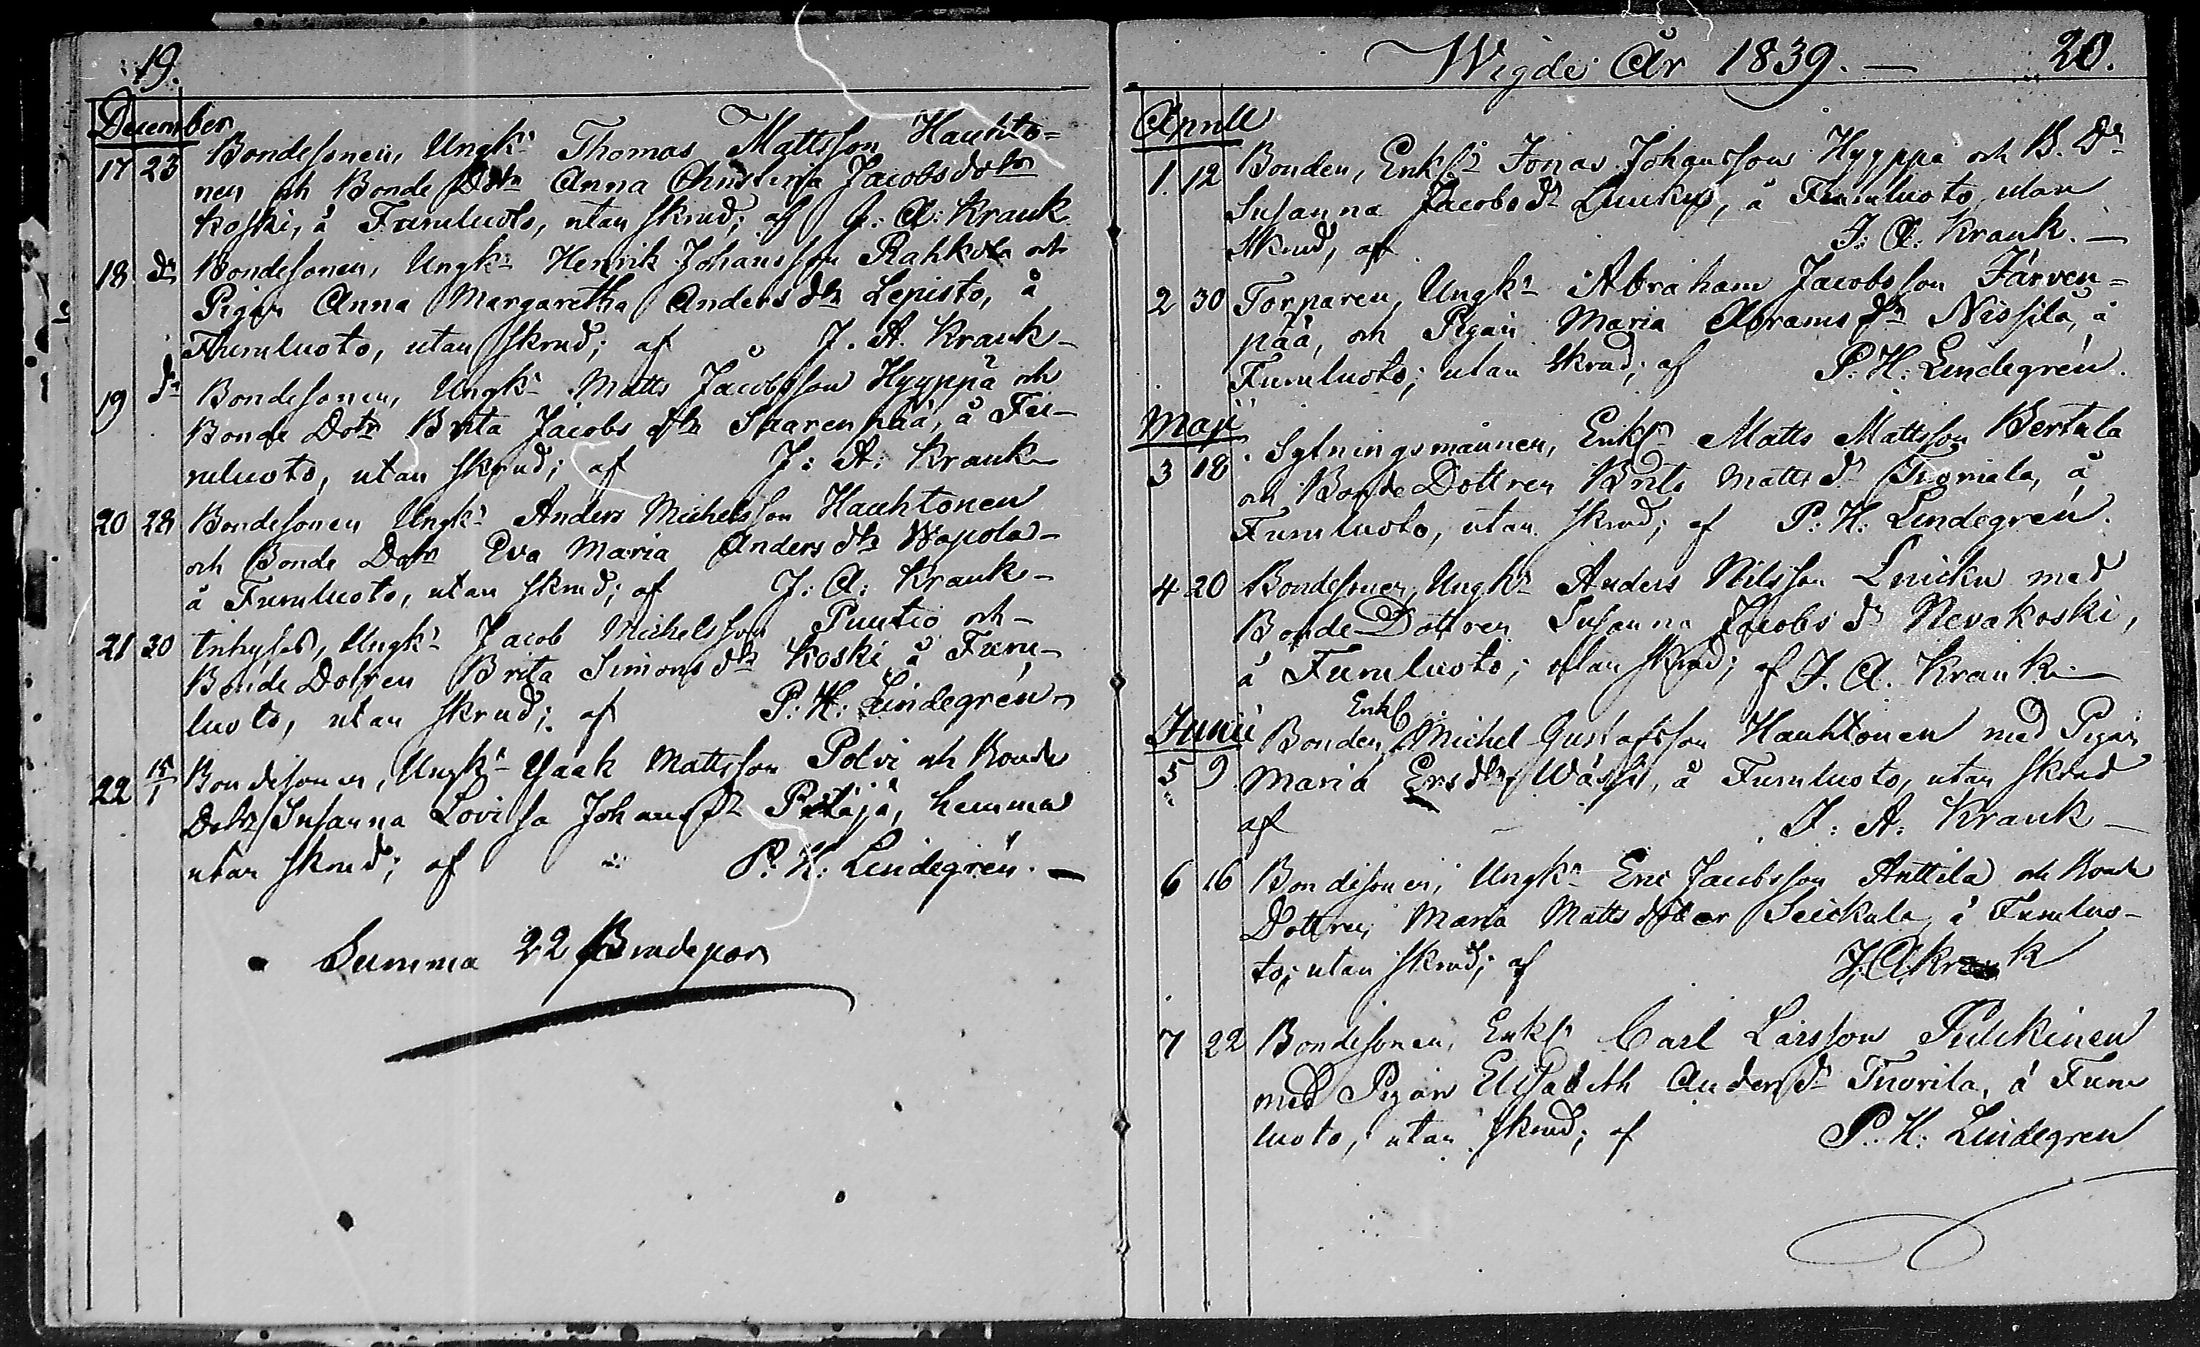 19.
December
17 23 Bondesonen, Ungk: Thomas Mattsson Hauhto=
nen och Bonde Dotr Anna Christina Jacobsdotr
Koski, å Fumluoto, utan skrud; af J: A: Krank
18 do Bondesonen, Ungk: Henrik Johansson Rahkola och
Pigan Anna Margaretha Anders dtr Lepisto, å
Fumluoto, utan skrud; af J. A. Krank –
19 do Bondesonen, Ungk: Matts Jacobsson Hyyppä och
Bonde Dotr Brita Jacobs dtr Saarenpää, å Fu-
mluoto, utan skrud; af J: A: Krank –
20 28 Bondesonen Ungk: Anders Michelsson Hauhtonen
och Bonde Dotr Eva Maria Anders dtr Wapola –
å Fumluoto, utan skrud; af J: A: Krank –
21 30 Inhyses, Ungk: Jacob Michelsson Puutio och –
Bonde Dotren Brita Simons dtr Koski å Fum-
luoto, utan skrud; af P: H: Lindegrén –
22 15/1 Bondesonen, Ungk: Mattsson Polvi och Bonde
Dotr Susanna Lovisa Johans dr Pitäjä, hemma
utan skrud; af P: H: Lindegrén. –
Summa 22 Brudepar
Wigde År 1839. – 20.
Aprill
1. 12 Bonden, Enkl: Jonas Johansson Hyyppä och B. Dr
Susanna Jacobs dr Luucku, å Fumluoto, utan
skrud, af J: A: Krank. –
2 30 Torparen, Ungk: Abraham Jacobsson Järven=
pää, och Pigan Maria Abrams dr Nissilä, å
Fumluoto; utan skrud; af P: H: Lindegrén.
Maji
3 18 Sytningsmannen, Enkl: Matts Mattsson Bertula
och Bonde Dottren Brita Matts dr å
Fumluoto, utan skrud; af P: H: Lindegrén.
4 20 Bondesonen, Ungk: Anders Nilsson Luucku med
Bonde Dottren Susanna Jacobs dr Nevakoski,
å Fumluoto; utan skrud; af J. A. Krank –
Enkl
Junii Bonden, Michel Gustafsson Hauhtonen med Pigan
5 9 Maria Ersdtr å Fumluoto, utan skrud
af J: A: Krank –
6 16 Bondesonen, Ungk: Eric Jacobsson Anttila och Bonde
Dottren Maria Matts dotter å Fumluo-
to; utan skrud; af J. A. Krank
7 22 Bondesonen, Enkl: Carl Larsson Pulckinen
med Pigan Elisabeth Anders dr Tuorila, å Fum
luoto, utan skrud; af P. H: Lindegren